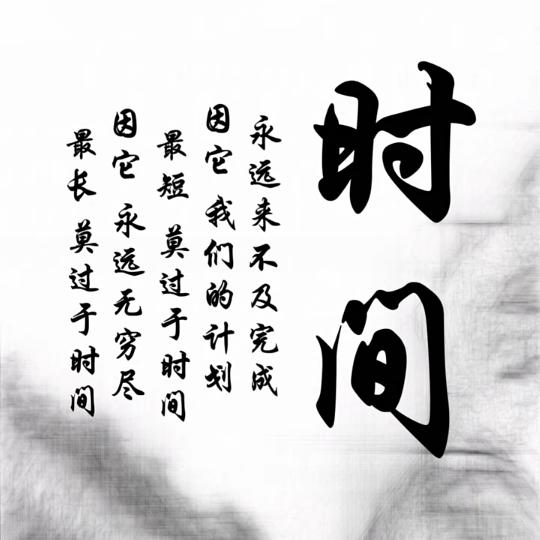 时间
最长 莫过于时间
因它 永远无穷尽
最短 莫过于时间
因它 我们的计划
永远来不及完成